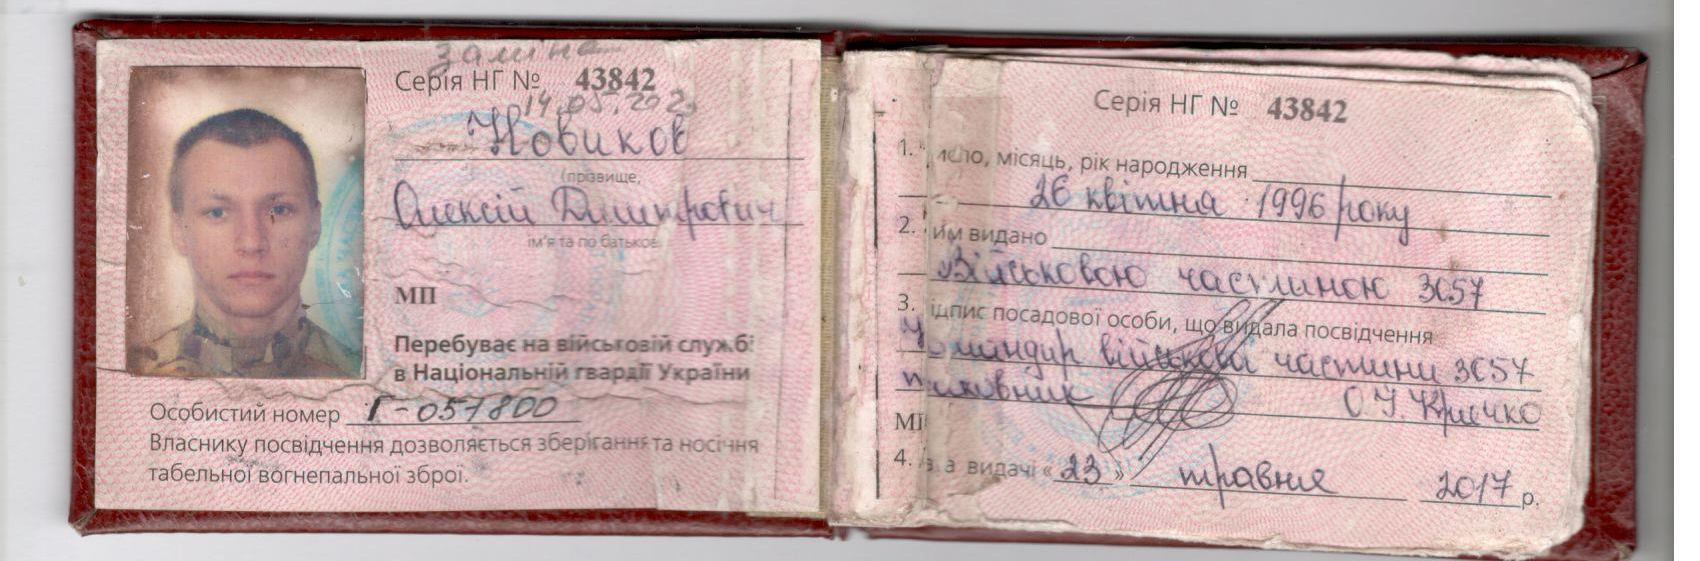 заміна
Серія НГ № 43842
14.05.202
Новиков
(прізвище,
Олексій Дмитрович
ім'я та по батькові
МП
Перебуває на військовій службі
в Національній гвардії України
Особистий номер Г-051800
Власнику посвідчення дозволяється зберігання та носіння
табельної вогнепальної зброї.
Серія НГ № 43842
1. місяць, рік народження
26 квітня 1996 року
2. им видано
Військовою частиною 3057
3. ідпис посадової особи, що видала посвідчення
військової частини 3057
О.
МП
4. видачі «23» травня 2017 р.